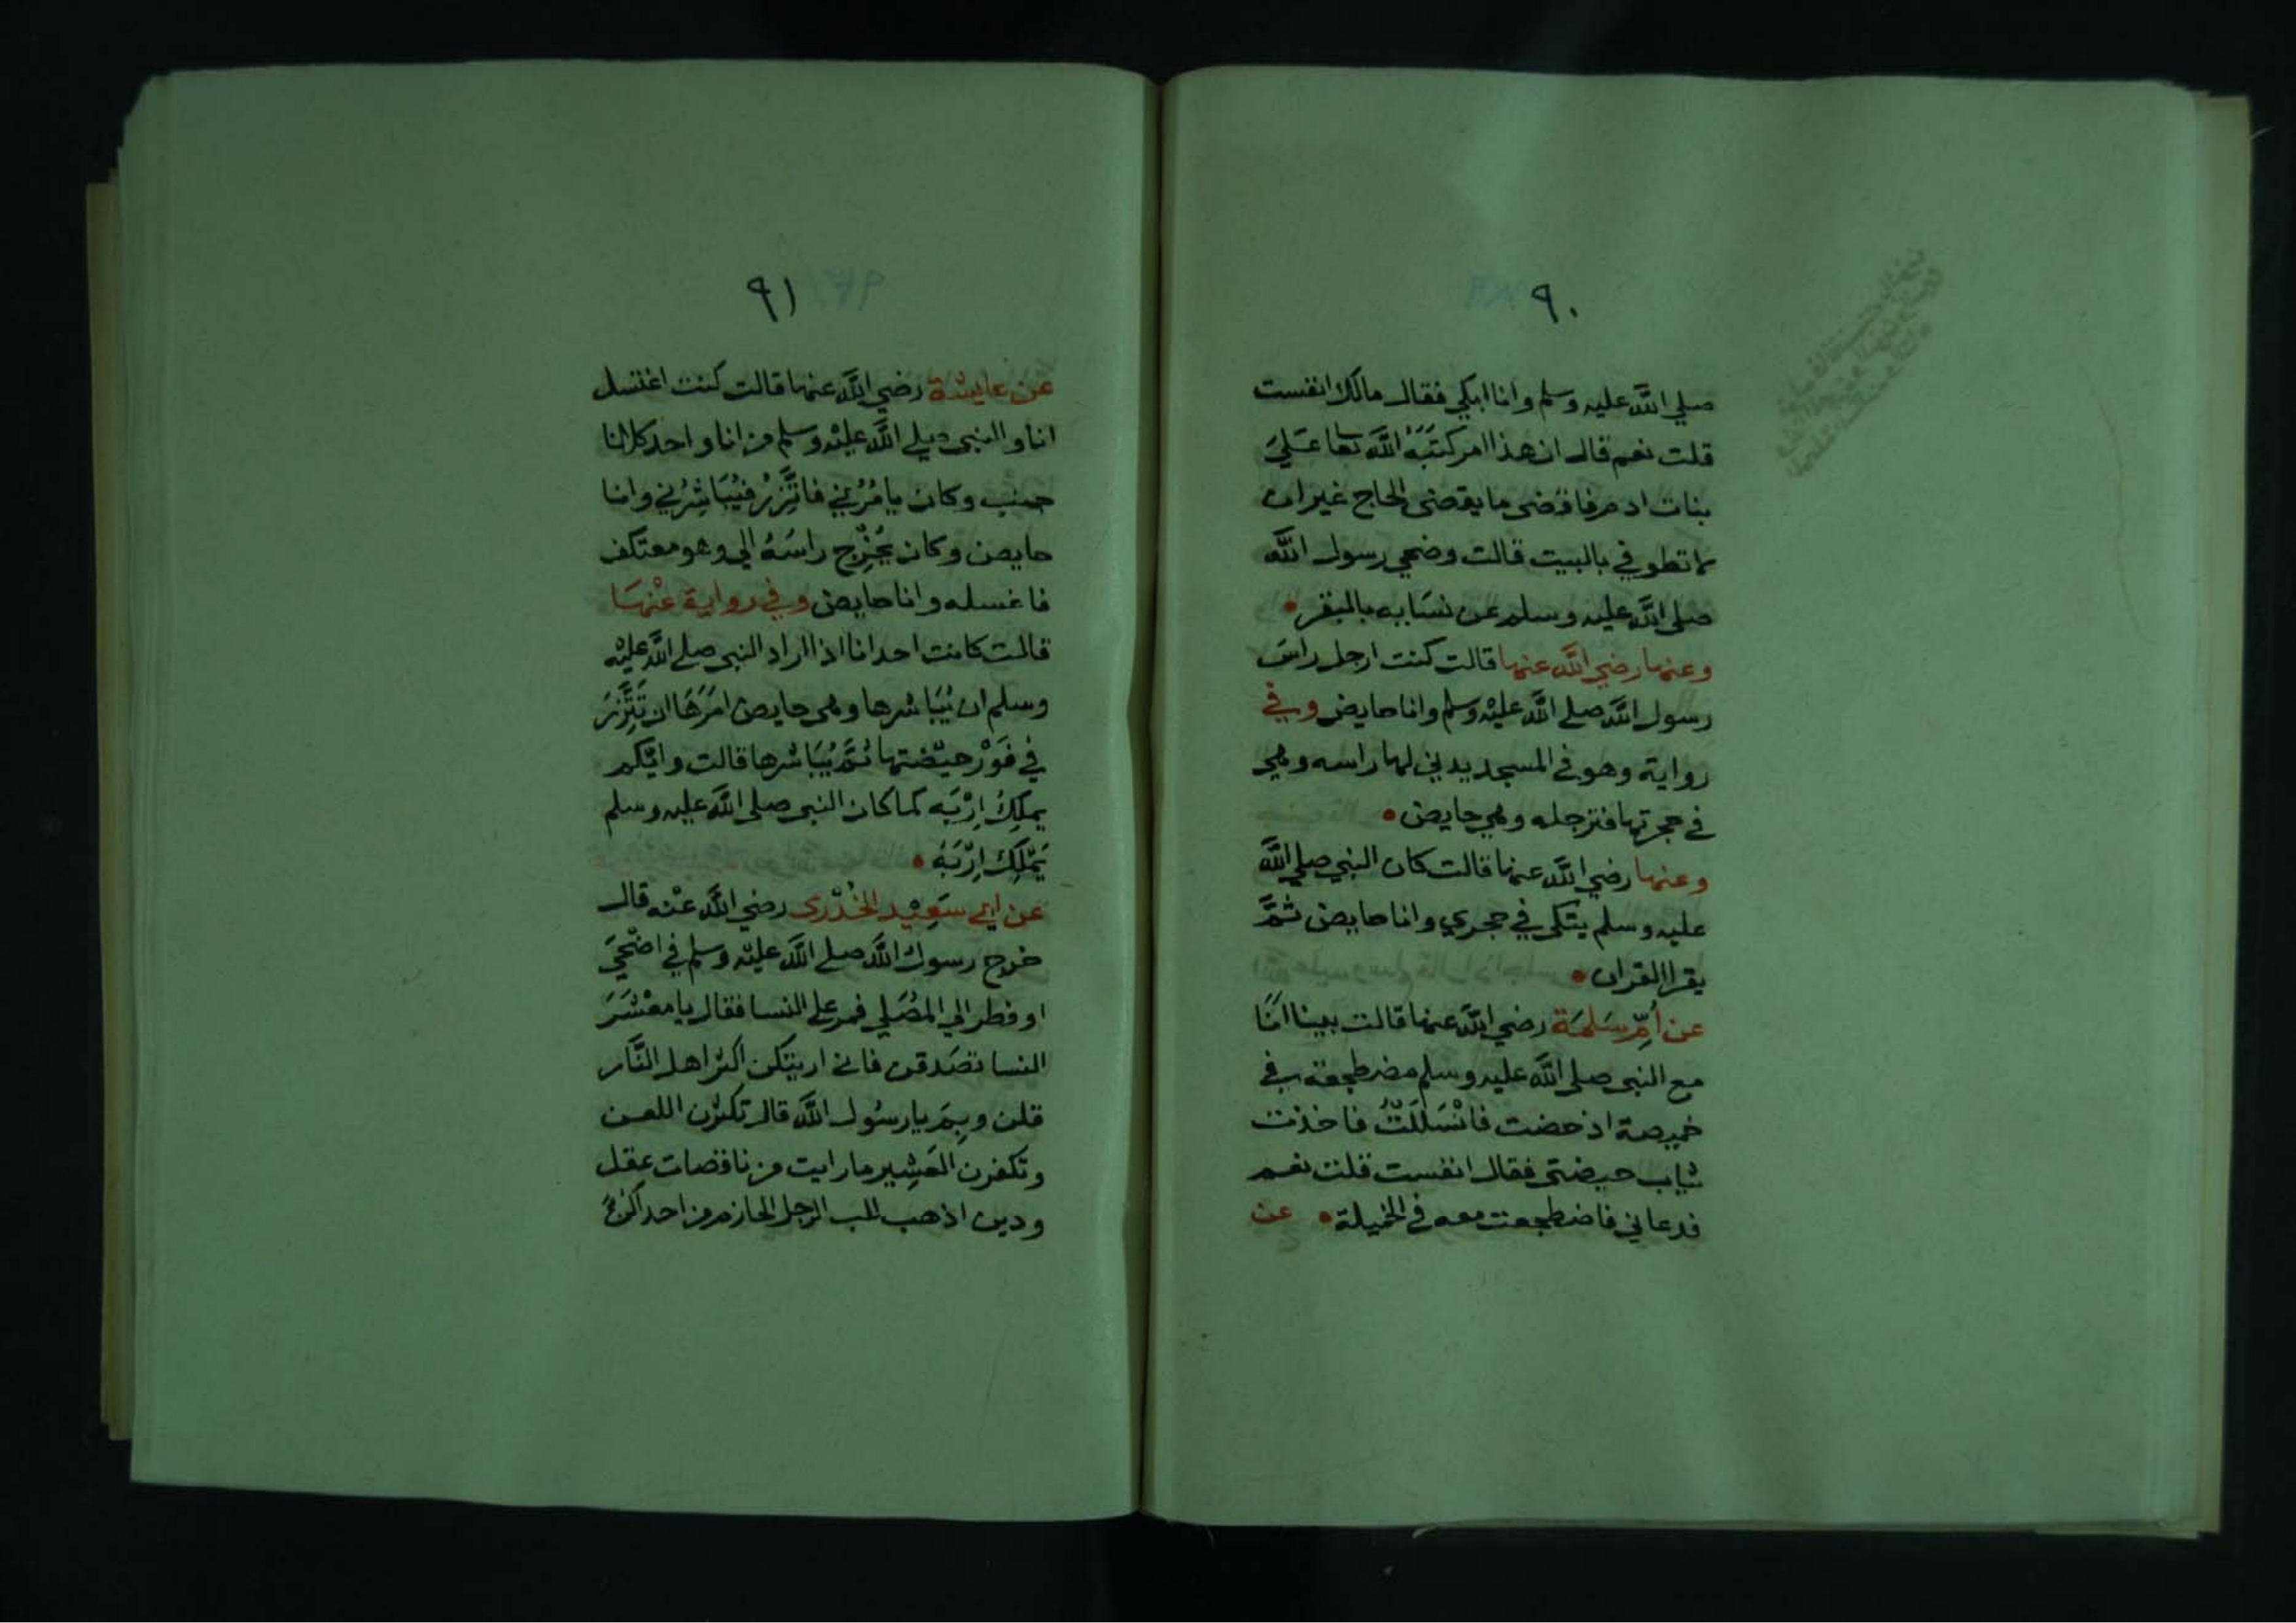 ٩٠
صلي الله عليه وسلم وانا ابكي فقال مالك انفست
قلت نعم قال ان هذا امر كَتَبَهُ الله تعا عَلَيَ
بنات ادم فاقضى ما يقضى الحاج غير ان
لا تطوفي بالبيت قالت وضحي رسول الله
صلى الله عليه وسلم عن نسَايه بالبقر
وعنها رضي الله عنها قالت كنت ارجل راسَ
رسول الله صلى الله عليْه وسلم وانا حايض وفي
رواية وهو في المسجد يدني لها راسه وهي
في حجرتها فترجله وهي حايض
وعنها رضي الله عنها قالت كان النبي صلي الله
عليه وسلم يتكى في حجري وانا حايض ثمَّ
يقرا القران
عن اُمِّ سَلمَة رضي الله عنها قالت بينا انَا
مع النبي صلى الله عليه وسلم مضطجعة في
خميصة اذ حضت فانْسَلَلتُ فاخذت
ثياب حيضتى فقال انفست قلت نعم
فدعاني فاضطجعت معه في الخميلة عن
٩١
عن عايشة رضي الله عنها قالت كنت اغتسل
انا والنبي صلى الله عليْه وسلم من انا واحد كلانا
جنب وكان يامُرُني فاتَّزِرُ فيُبَاشِرُني وانا
حايض وكان يُخرِج راسَهُ الي وهو معتكف
فاغسله وانا حايض وفي رواية عنْهَا
قالت كانت احدانا اذا اراد النبي صلى الله عليْه
وسلم ان يُبَاشرها وهي حايض امَرَهَا ان تَتَّزِرَ
في فَوْرِ حيْضتها ثمَّ يُبَاشرها قالت وايّكم
يملِكُ اِرْبَه كما كان النبي صلى الله عليه وسلم
يَمْلِكُ اِرْبَهُ
عن ابي سَعِيْد الخُدْرى رضي الله عنْه قال
خرج رسول الله صلى الله عليْه وسلم في اضْحَيَ
او فطر الي المُصَلي فمر على النسا فقال يا معْشَرَ
النسا تصَدقن فاني اريتكن اكثر اهل النَّار
قلن وبِمَ يا رسُول الله قال تكثرن اللعن
وتكفرن العَشِير ما رايت من ناقصات عقل
ودين اذهب للب الرجل الحازم من احداكنَّ